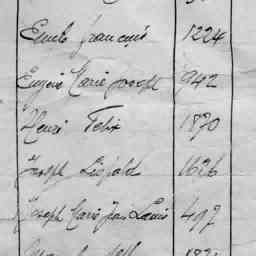 Emile françois 1224
Eugène Marie Joseph 942
Henri Felix 1870
Joseph Léopold 1626
Joseph Marie Jean Louis 497